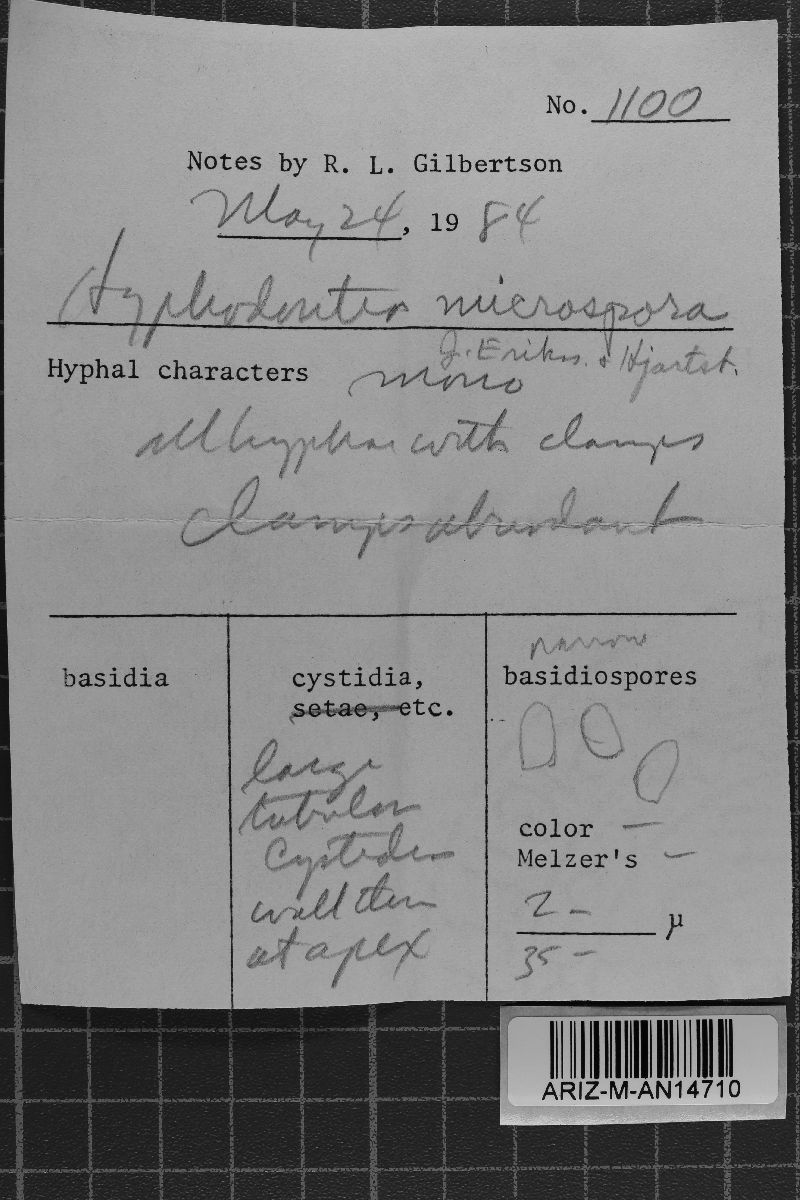 No. 1100
Notes by R. L. Gilbertson
May 24, 19 84
Hyphodontia microspora
J. Erikss. & Hjortst.
Hyphal characters mono
all hyphae with clamps
clamps abundant
narrow
basidia cystidia, basidiospores
setae, etc.
large
tubular
cystidia
wall thin
at apex
color —
Melzer's —
2 —
μ
35 —
ARIZ-M-AN14710